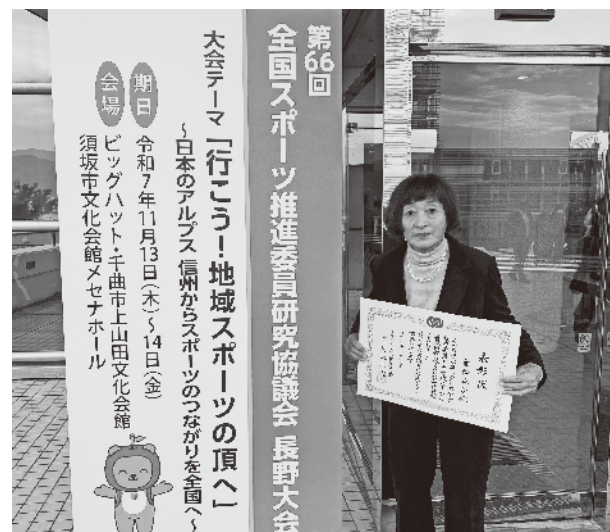 第66回
全国スポーツ推進委員研究協議会 長野大会
大会テーマ「行こう!地域スポーツの頂へ」
~日本のアルプス 信州からスポーツのつながりを全国へ~
期日 令和7年11月13日(木)~14日(金)
会場 ビッグハット・千曲市上山田文化会館
須坂市文化会館メセナホール
表彰状